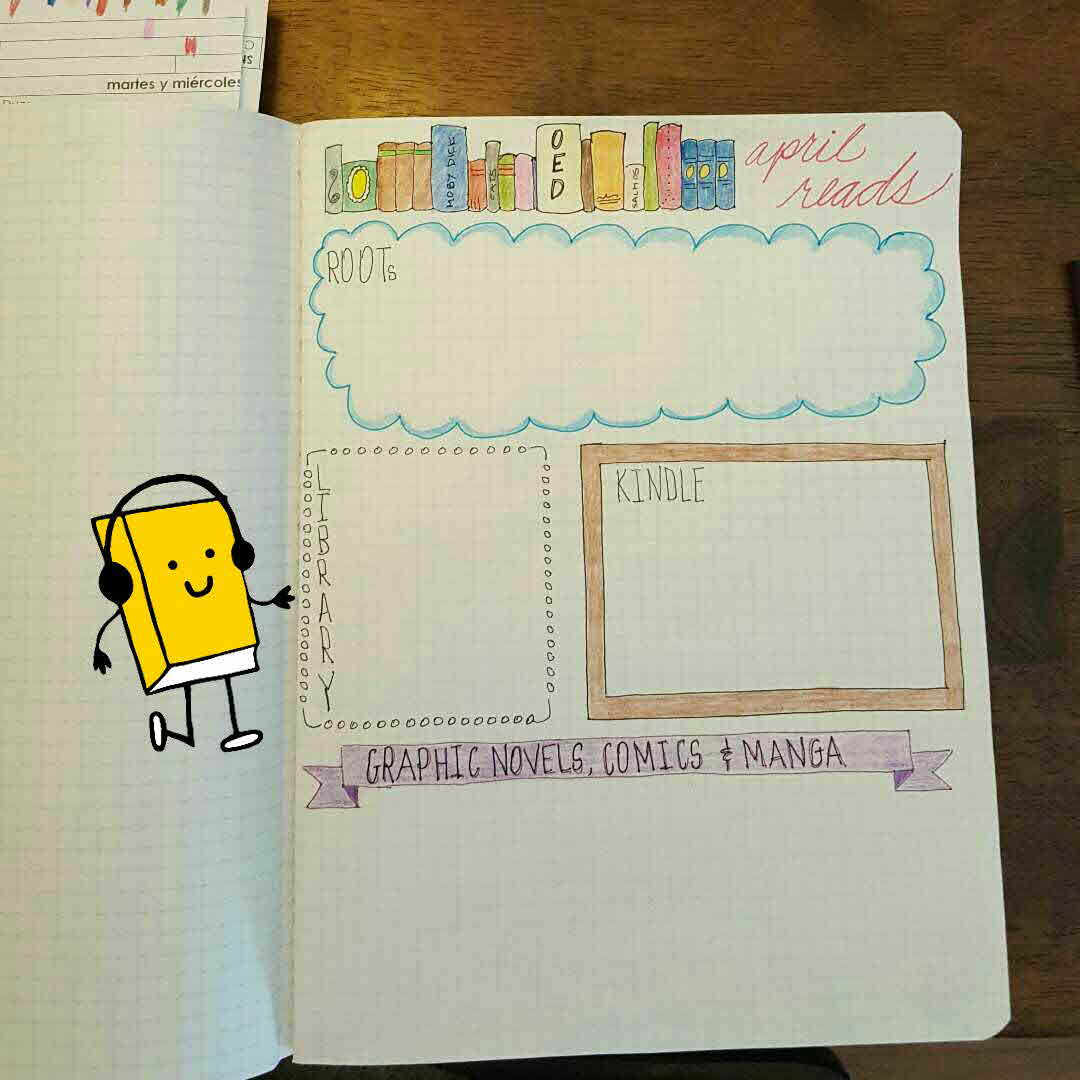 martes y miércoles
MOBY DICK
CATS
OED
PSALMS
april
reads
ROOTs
LIBRARY
KINDLE
GRAPHIC NOVELS, COMICS & MANGA